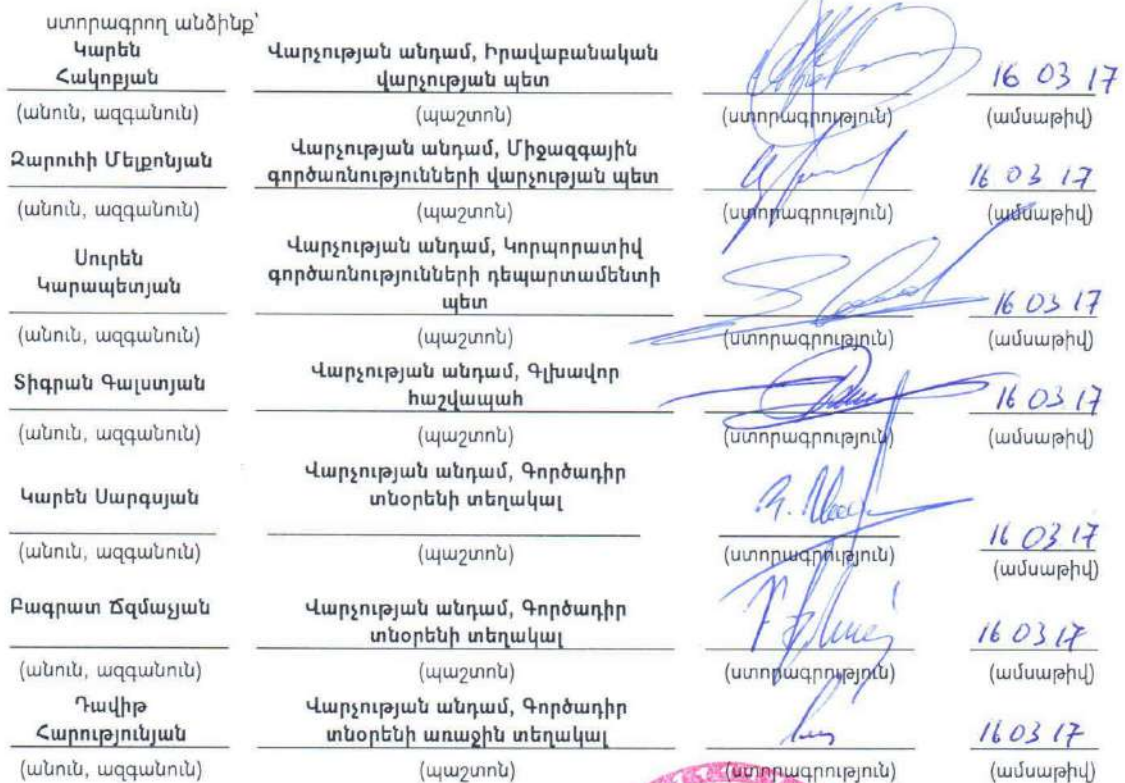 ստորագրող անձինք՝
Կարեն
Հակոբյան
Վարչության անդամ, Իրավաբանական
վարչության պետ
16 03 17
(անուն, ազգանուն) (պաշտոն) (ստորագրություն) (ամսաթիվ)
Զարուհի Մելքոնյան
Վարչության անդամ, Միջազգային
գործառնությունների վարչության պետ
16 03 17
(անուն, ազգանուն) (պաշտոն) (ստորագրություն) (ամսաթիվ)
Սուրեն
Կարապետյան
Վարչության անդամ, Կորպորատիվ
գործառնությունների դեպարտամենտի
պետ
16 03 17
(անուն, ազգանուն) (պաշտոն) (ստորագրություն) (ամսաթիվ)
Տիգրան Գալստյան
Վարչության անդամ, Գլխավոր
հաշվապահ
16 03 17
(անուն, ազգանուն) (պաշտոն) (ստորագրություն) (ամսաթիվ)
Կարեն Սարգսյան
Վարչության անդամ, Գործադիր
տնօրենի տեղակալ
16 03 17
(անուն, ազգանուն) (պաշտոն) (ստորագրություն) (ամսաթիվ)
Բագրատ Ճզմաչյան
Վարչության անդամ, Գործադիր
տնօրենի տեղակալ
16 03 17
(անուն, ազգանուն) (պաշտոն) (ստորագրություն) (ամսաթիվ)
Դավիթ
Հարությունյան
Վարչության անդամ, Գործադիր
տնօրենի առաջին տեղակալ
16 03 17
(անուն, ազգանուն) (պաշտոն) (ստորագրություն) (ամսաթիվ)